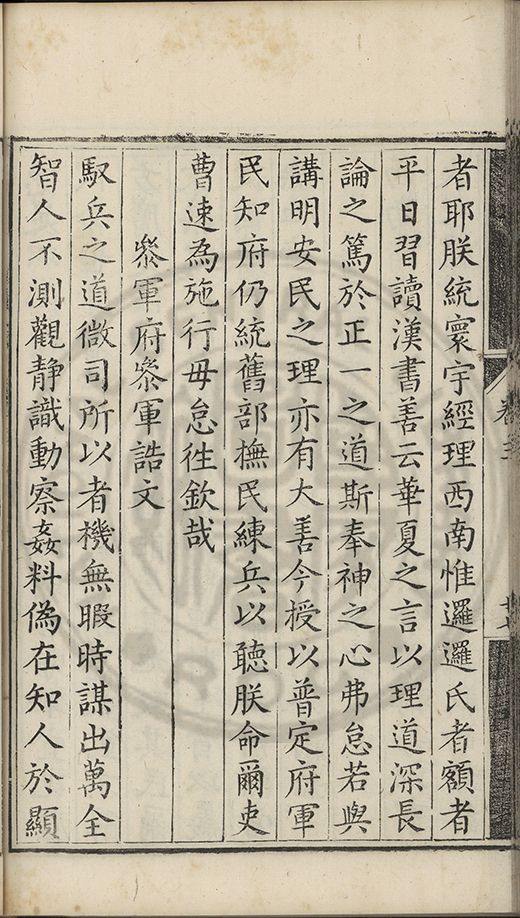 者耶朕統寰宇經理西南惟邏邏氏者額者
平日習讀漢書善云華夏之言以理道深長
論之篤於正一之道斯奉神之心弗怠若與
講明安民之理亦有大善今授以普定府軍
民知府仍統舊部撫民練兵以聽朕命爾吏
曹速為施行毋怠徃欽哉
叅軍府叅軍誥文
馭兵之道微司所以者機無暇時謀出萬全
智人不測觀静識動察姦料偽在知人於顯